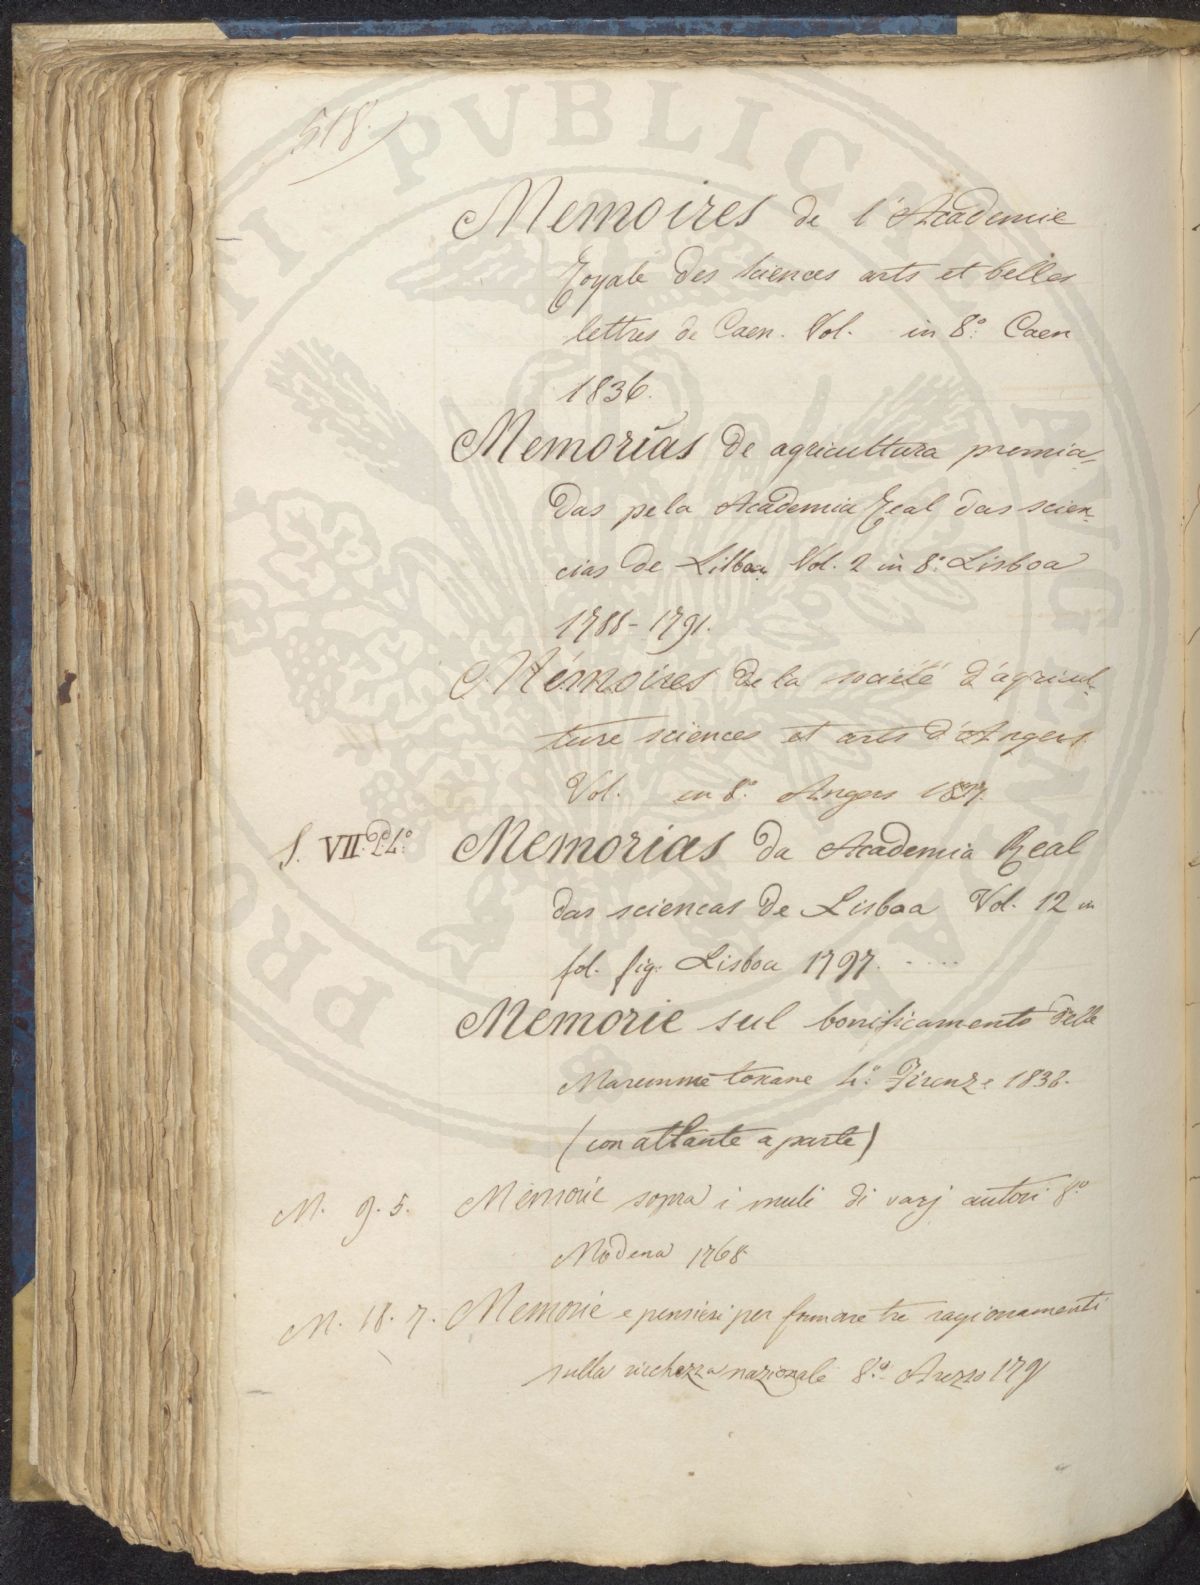 518.
Memoires de l'Academie
Royale des sciences arts et belles
lettres de Caen. Vol. in 8.° Caen
1836.
Memorias de agricultura premia-
das pela Academia Real das scien-
cias de Lisboa Vol. 2 in 8.° Lisboa
1788-1791.
Mémoires de la société d'agricul-
ture sciences et arts d'Angers
Vol. in 8.° Angers
S. VII. P.L.° Memorias da Academia Real
das sciencas de Lisboa Vol. 12 in
fol. fig. Lisboa 1797. ....
Memorie sul bonificamento delle
Maremme toscane 4.° Firenze 1838.
(con atlante a parte)
M. 9. 5. Memorie sopra i muli di varj autori 8.°
Modena 1768
M. 18. 7. Memorie e pensieri per formare tre ragionamenti
sulla ricchezza nazionale 8.° Arezzo 179
PROPRIETA PUBLICAE